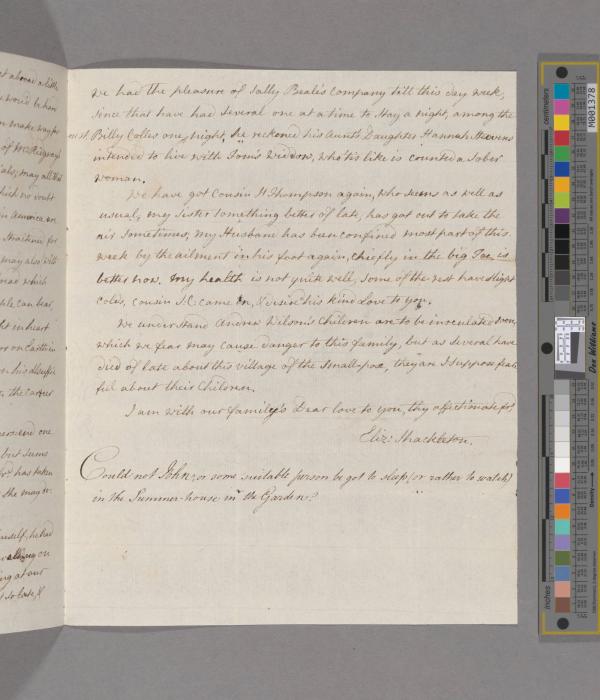 we had the pleasure of Sally Beale's company till this day week,
since that have had several one at a time to stay a night, among the
rest Billy Coles one night, he reckoned his Aunt's Daughter Hannah Stevens
intended to live with Tom's Widdow, who tis like is counted a sober
woman.
We have got Cousin H Thompson again, who seems as well as
usual, my sister something better of late, has got out to take the
air sometimes, my Husband has been confined most part of this
week by the ailment in his foot again, chiefly in the big Toe, is
better now. my health is not quite well, some of the rest have slight
colds, cousin S.C came in, & desires his kind Love to you.
We understand Andrew Wilson's Children are to be inoculated soon,
which we fear may cause danger to this family, but as several have
died of late about this village of the small-pox, they are I suppose fear
ful about their Children.
I am with our family's Dear love to you, thy affectionate
Eliz: Shackleton.
Could not John, or some suitable person be got to sleep (or rather to watch)
in the Summer-house in the Garden?
of McRidgway's
may all
which no doubt
in America, are
may also
which
can bear
in heart
one
but seems
has taken
himself, he had
on
at our
centimeters
inches
M001378
Don Williams
Density